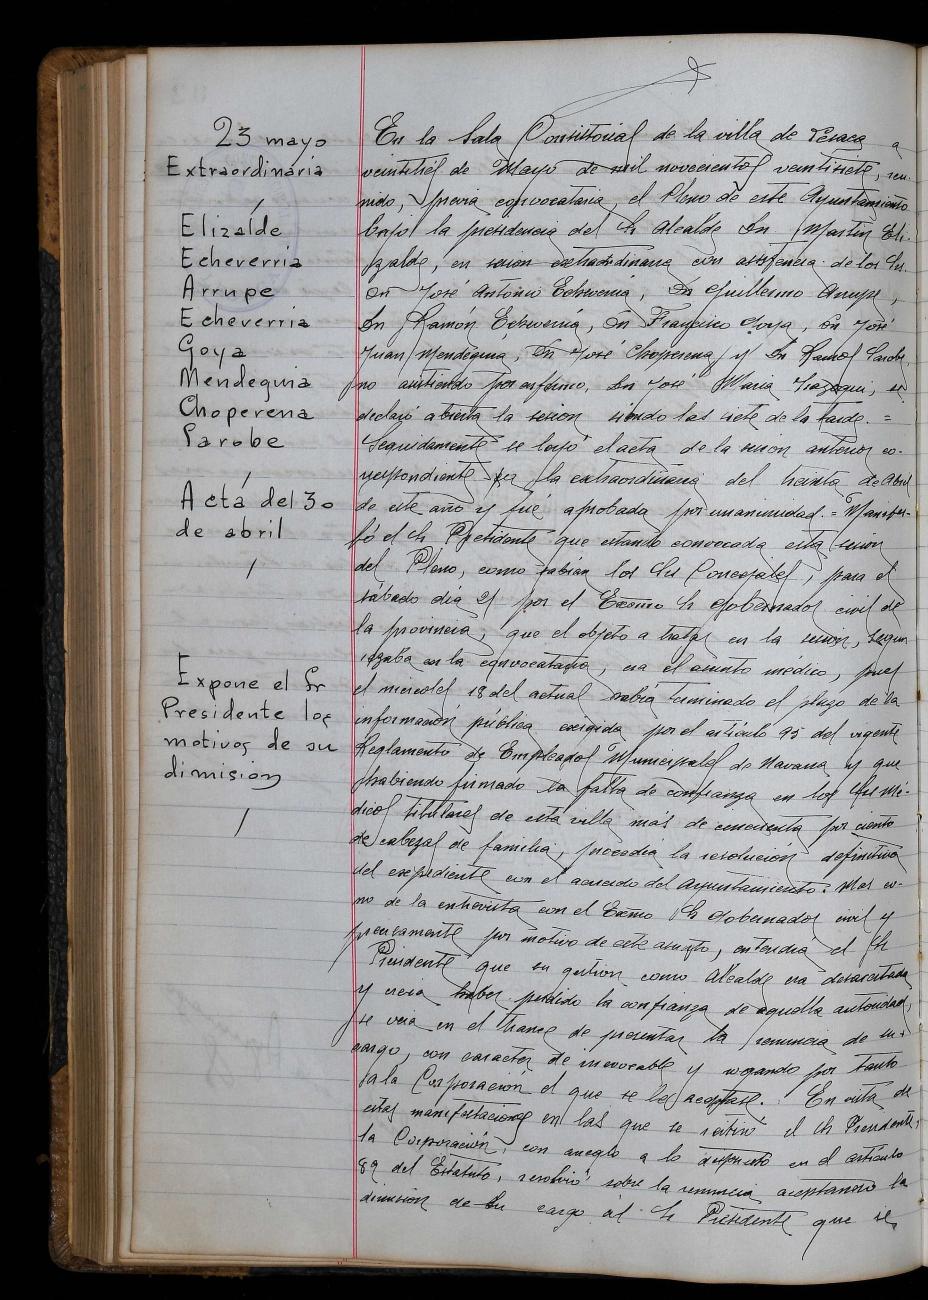 23 mayo
Extraordinaria
Elizalde
Echeverria
Arrupe
Echeverria
Goya
Mendeguia
Choperena
Parobe
Acta del 30
de abril
Expone el Sr
Presidente los
motivos de su
dimisión
En la Sala Consistorial de la villa de Lesaca a
veintitrés de Mayo de mil novecientos veintisiete, reu-
nido, previa convocatoria, el Pleno de este Ayuntamiento
bajo la presidencia del Sr Alcalde Dn Martin Eli-
zalde, en sesion extraordinaria con asistencia de los Sres.
Dn José Antonio Echeverria, Dn Guillermo Arrupe,
Dn Ramón Echeverria, Dn Francisco Goya, Dn José
Juan Mendeguia, Dn José Choperena y Dn Ramos Parobe,
no asistiendo por enfermo, Dn José Maria, se
declaró abierta la sesion siendo las siete de la tarde. =
Seguidamente se leyó el acta de la sesion anterior co-
rrespondiente a la extraordinaria del treinta de Abril
de este año y fué aprobada por unanimidad. = Manifes-
tó el Sr Presidente que estando convocada esta sesion
del Pleno, como sabian los Sres Concejales, para el
sábado dia 21 por el Excmo Sr Gobernador civil de
la provincia, que el objeto a tratar en la sesion, segun
rezaba en la convocatoria, era el asunto médico, pues
el miercoles 18 del actual habia terminado el plazo de la
información pública exigida por el articulo 95 del vigente
Reglamento de Empleados Municipales de Navarra y que
habiendo firmado la falta de confianza en los Sres Mé-
dicos titulares de esta villa más de cincuenta por ciento
de cabezas de familia, procedia la resolución definitiva
del expediente con el acuerdo del Ayuntamiento. Mas co-
mo de la entrevista con el Excmo Sr Gobernador civil y
precisamente por motivo de este asunto, entendia el Sr
Presidente que su gestion como Alcalde era desacertada
y creia haber perdido la confianza de aquella autoridad,
se veia en el trance de presentar la renuncia de su
cargo, con caracter de irrevocable y rogando por tanto
a la Corporación el que se le aceptase. En vista de
estas manifestaciones en las que se retiró el Sr Presidente,
la Corporación, con arreglo a lo dispuesto en el articulo
89 del Estatuto, resolvió sobre la renuncia aceptando la
dimisión de su cargo al Sr Presidente que se